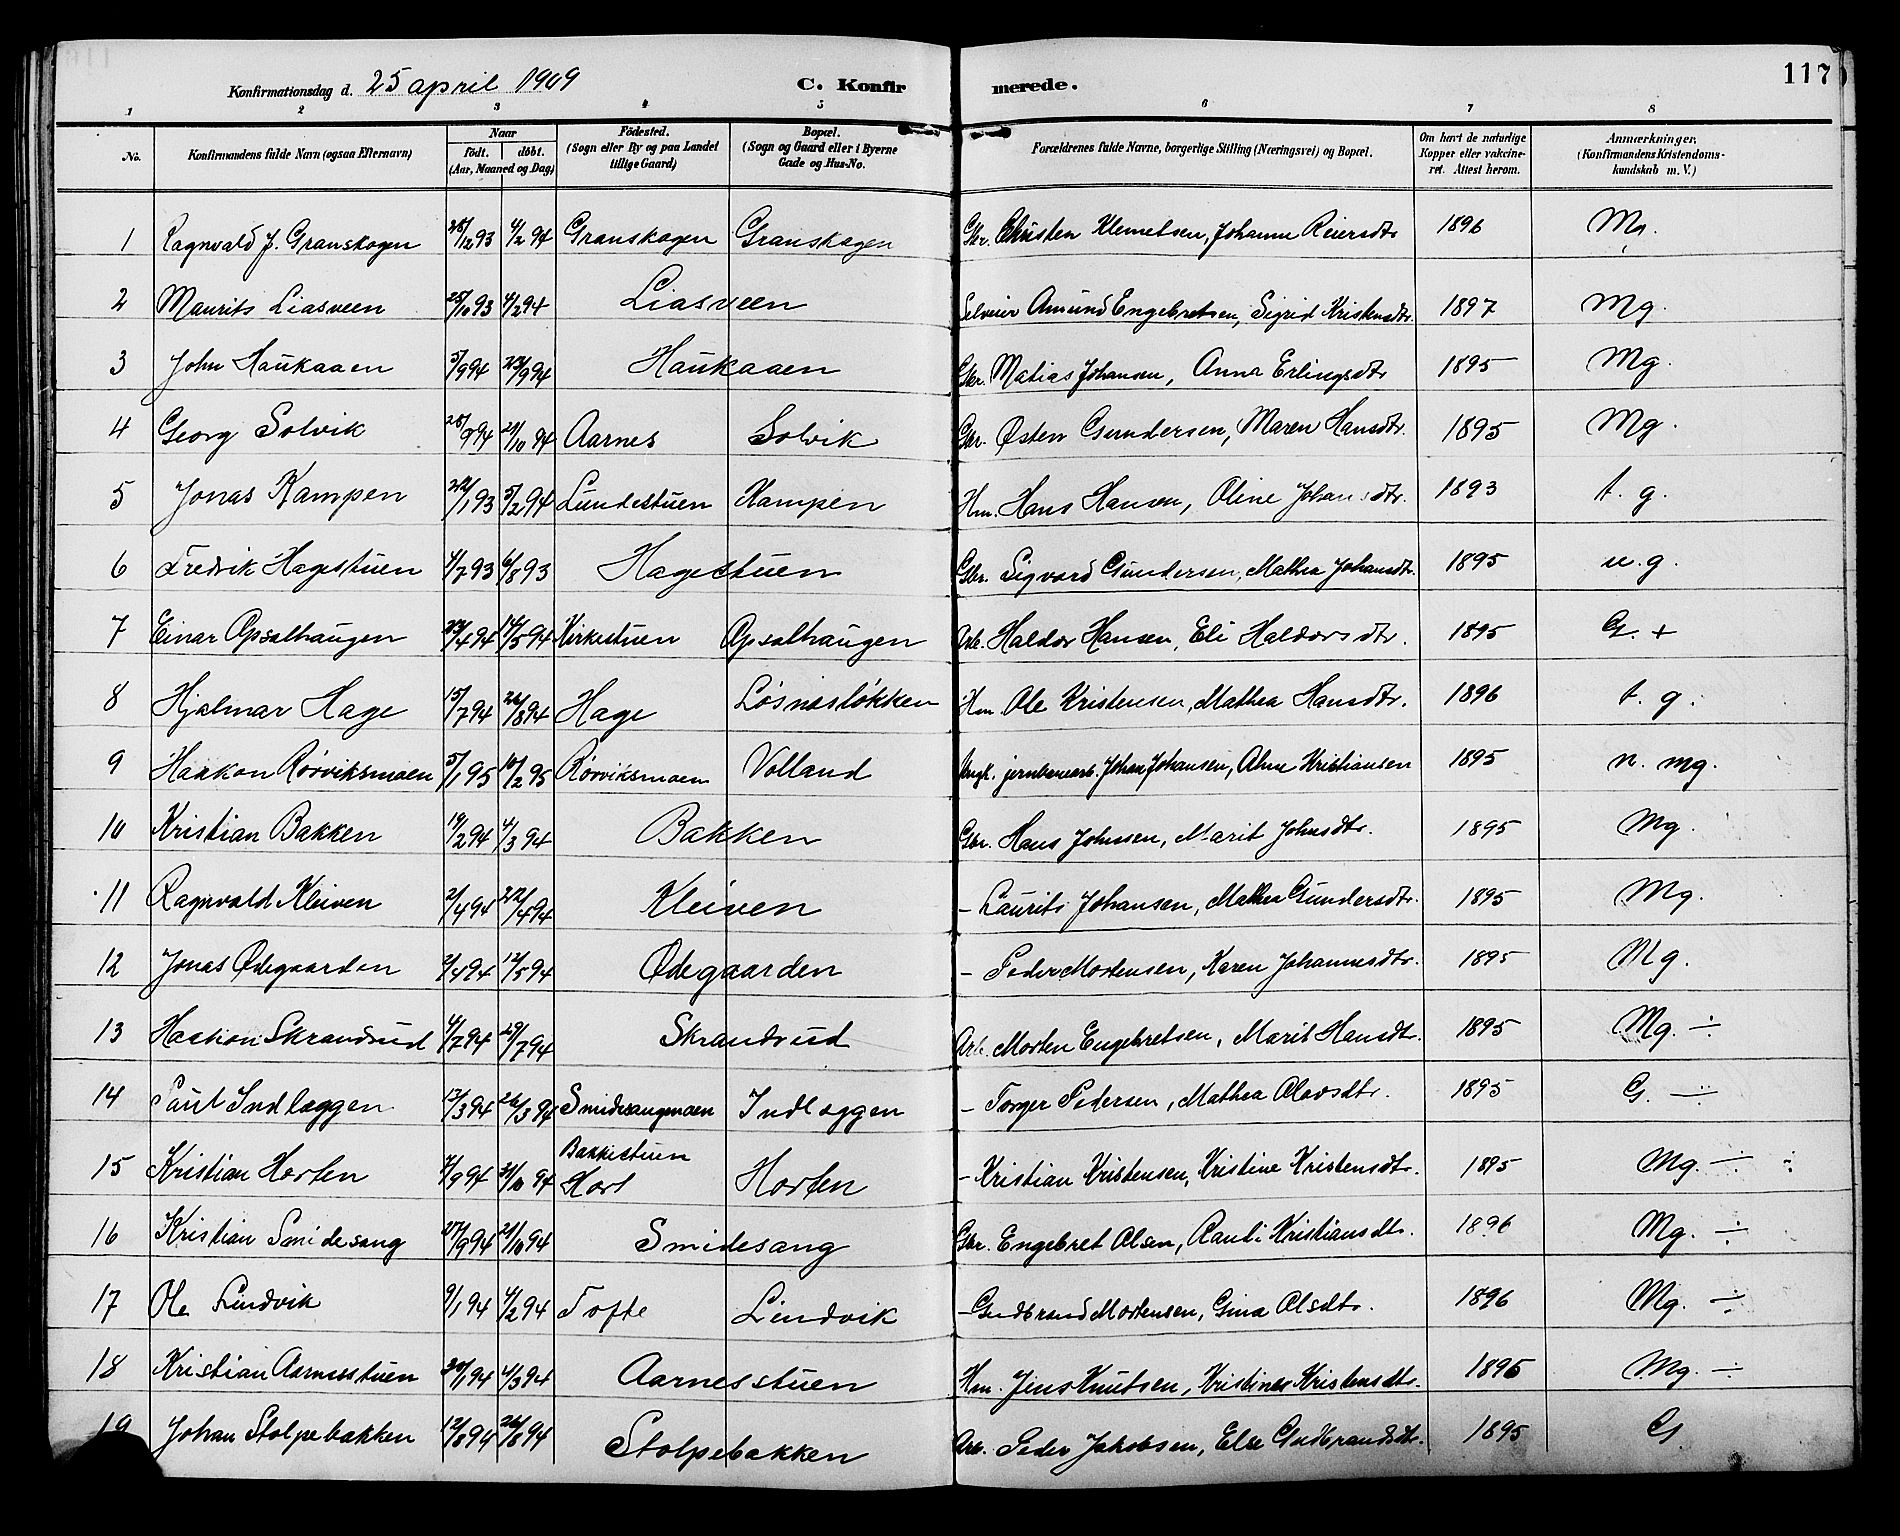 117
Konfirmationsdag d. 25 april 1909 C. Konfir merede.
1 2 3 4 5 6 7 8
No. Konfirmandens fulde Navn (ogsaa Efternavn) Naar födt. döbt. (Aar, Maaned og Dag) Födested. (Sogn eller By og paa Landet tillige Gaard) Bopæl. (Sogn og Gaard eller i Byerne Gade og Hus-No. Forældrenes fulde Navne, borgerlige Stilling (Næringsvei) og Bopæl. Om havt de naturlige Kopper eller vakcineret. Attest herom. Anmærkninger. (Konfirmandens Kristendomskundskab m. V.)
1 Ragnvald J. Granskogen 28/12 93 4/2 94 Granskogen Granskogen Gbr. Christen Klemetsen, Johanne Reiersdtr 1896 Mg.
2 Maurits Liasveen 25/10 93 4/2 94 Liasveen Selveier Amund Engebretsen, Sigrid Kristensdtr. 1897 Mg.
3 John Haukaaen 5/9 94 23/9 94 Haukaaen Gbr. Matias Johansen, Anna Erlingsdtr 1895 Mg.
4 Georg Solvik 28/9 94 21/10 94 Aarnes Solvik Gbr. Østen Gundersen, Maren Hansdtr. 1895 Mg.
5 Jonas Kampen 22/1 93 5/2 94 Lundestuen Kampen Hm. Hans Hansen, Oline Johansdtr. 1893 t. g.
6 Fredrik Hagestuen 4/7 93 6/8 93 Hagestuen Gbr. Sigvard Gundersen, Mathea Johansdtr. 1895 u. g.
7 Einar Opsalhaugen 23/4 94 14/5 94 Kirkestuen Opsalhaugen Arb. Haldor Hansen, Eli Haldorsdtr. 1895 G. +
8 Hjalmar Hage 15/7 94 26/8 94 Hage Løsnesløkken Hm Ole Kristensen, Mathea Hansdtr. 1896 t. g.
9 Haakon Rørviksmoen 5/1 95 10/2 95 Rørviksmoen Volland Ungk. jernbanearb. Johan Johansen, Alma Kristiansen 1895 n. mg.
10 Kristian Bakken 19/2 94 4/3 94 Bakken Gbr. Hans Johnsen, Marit Johnsdtr. 1895 Mg.
11 Ragnvald Kleiven 2/4 94 22/4 94 Kleiven - Laurits Johansen, Mathea Gundersdtr. 1895 Mg.
12 Jonas Ødegaarden 2/4 94 12/5 94 Ødegaarden - Peder Mortensen, Karen Johannesdtr. 1895 Mg.
13 Haakon Skrandrud 4/7 94 29/7 94 Skrandrud Arb. Morten Engebretsen, Marit Hansdtr. 1895 Mg. ÷
14 Paul Indlæggen 17/3 94 26/3 94 Smidesangmoen Indlæggen - Torger Pedersen, Mathea Olavsdtr. 1895 G. ÷
15 Kristian Horten 7/9 94 21/10 94 Bakkestuen Hort Horten - Kristian Kristensen, Kristine Kristensdtr. 1895 Mg. ÷ ÷
16 Kristian Smidesang 27/9 94 21/10 94 Smidesang Gbr. Engebret Olsen, Randi Kristiansdtr. 1896 Mg. ÷
17 Ole Lindvik 9/1 94 4/2 94 Tofte Lindvik - Gudbrand Mortensen, Gina Olsdtr. 1896 Mg. ÷
18 Kristian Aarnesstuen 30/1 94 4/3 94 Aarnesstuen Hm. Jens Knutsen, Kristine Kristensdtr. 1896 Mg. ÷
19 Johan Stolpebakken 12/8 94 26/8 94 Stolpebakken Arb. Peder Jakobsen, Else Gudbrandsdtr. 1895 G